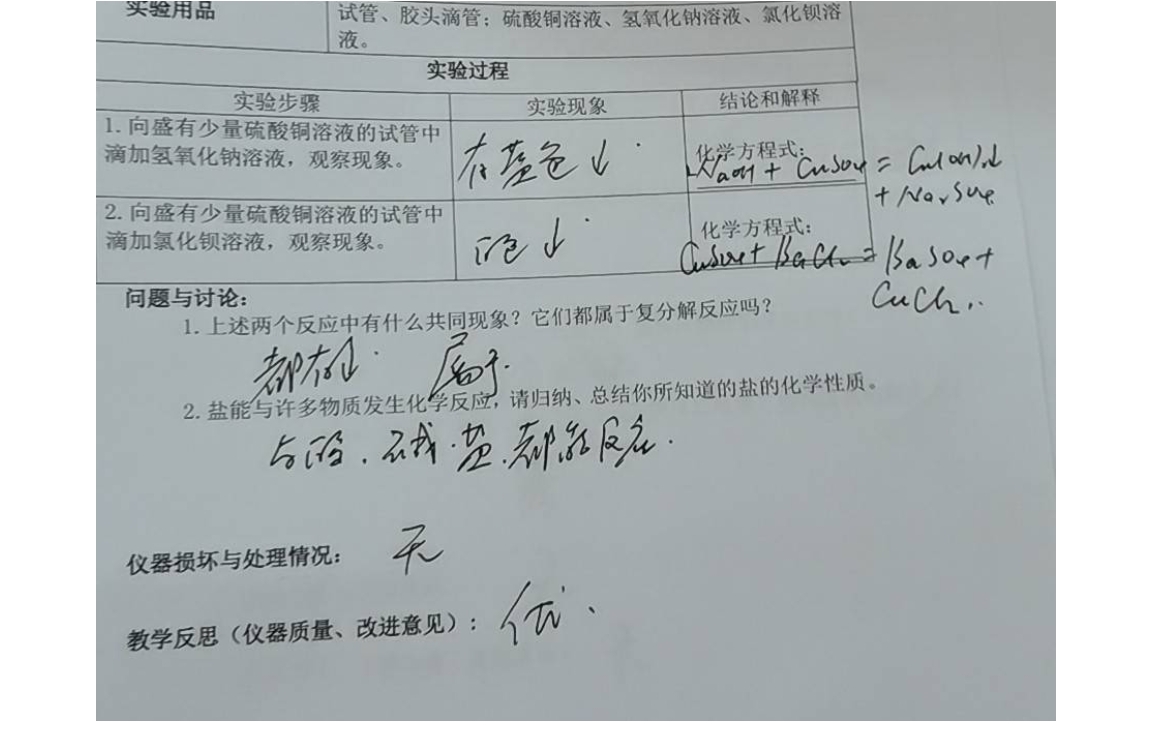 实验用品
试管、胶头滴管；硫酸铜溶液、氢氧化钠溶液、氯化钡溶
液。
实验过程
实验步骤 实验现象 结论和解释
1.向盛有少量硫酸铜溶液的试管中
滴加氢氧化钠溶液，观察现象。
有蓝色↓.
化学方程式：
NaOH + CuSO4 = Cu(OH)2↓
+ Na2SO4
2.向盛有少量硫酸铜溶液的试管中
滴加氯化钡溶液，观察现象。
白色↓
化学方程式：
CuSO4 + BaCl2 = BaSO4 +
CuCl2.
问题与讨论：
1.上述两个反应中有什么共同现象？它们都属于复分解反应吗？
都有↓. 属于.
2.盐能与许多物质发生化学反应，请归纳、总结你所知道的盐的化学性质。
与酸.碱.盐.都能反应.
仪器损坏与处理情况： 无
教学反思（仪器质量、改进意见）： 优.